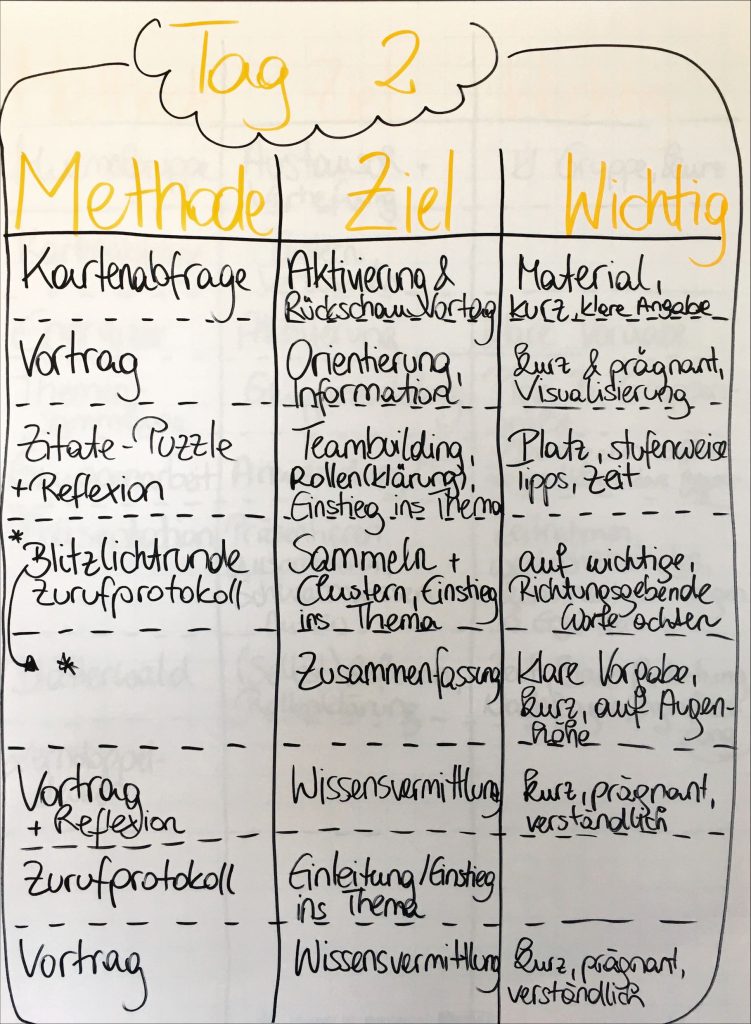 Tag 2
Methode Ziel Wichtig
Kartenabfrage
Aktivierung &
Rückschau Vortag
Material,
kurz, klare Angabe
Vortrag
Orientierung,
Information
kurz & prägnant,
Visualisierung
Zitate-Puzzle
+ Reflexion
Teambuilding,
Rollen(klärung),
Einstieg ins Thema
Platz, stufenweise
Tipps, Zeit
* Blitzlichtrunde
Zurufprotokoll
Sammeln +
Clustern, Einstieg
ins Thema
auf wichtige,
Richtungsgebende
Worte achten
*
Zusammenfassung
Klare Vorgabe,
kurz, auf Augen-
höhe
Vortrag
+ Reflexion
Wissensvermittlung
kurz, prägnant,
verständlich
Zurufprotokoll
Einleitung/Einstieg
ins Thema
Vortrag
Wissensvermittlung
kurz, prägnant,
verständlich